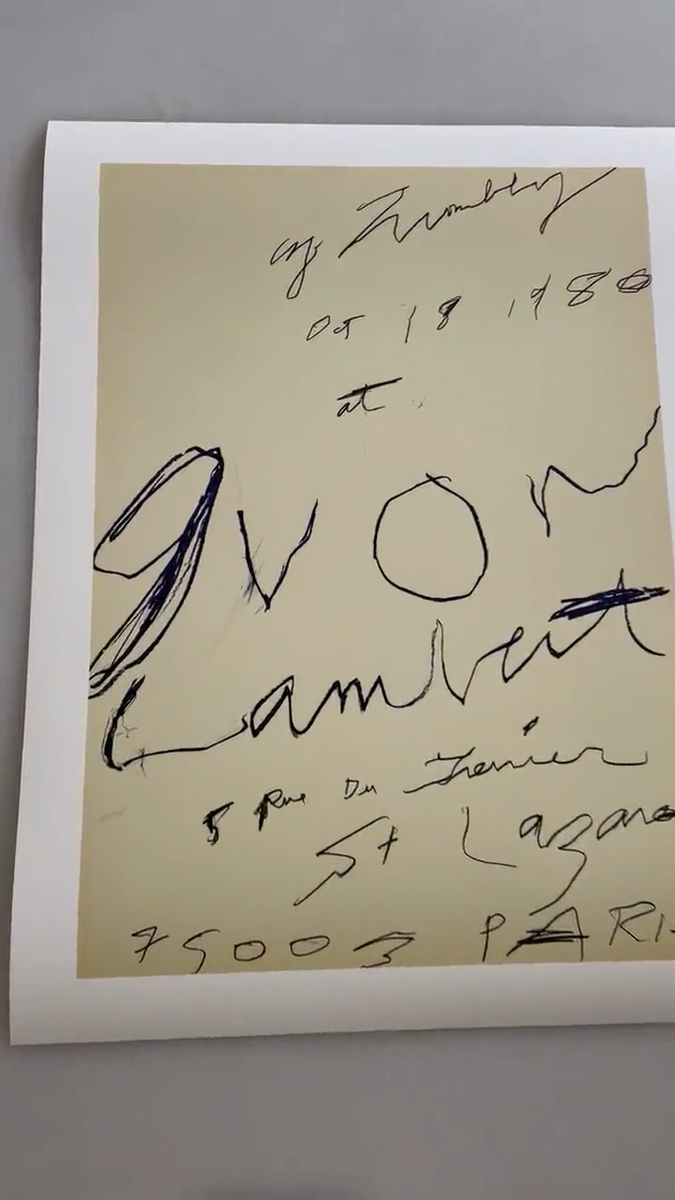 Cy Twombly
Oct 18 1980
at
Yvon
Lambert
5 Rue Du Grenier
St Lazare
75003 PARIS